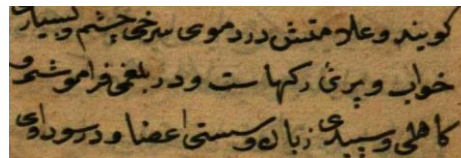 کویند و علامتش در دموی سرخی چشم و بسیاری
خواب و پری رکهاست و در بلغمی فراموشی و
کاهلی و سپیدی زبان و سستی اعضا و در سوداوی